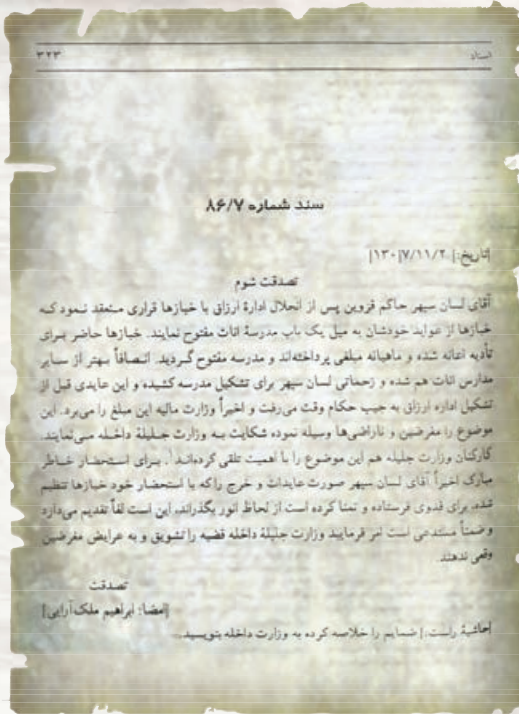 ۳۲۳
اسناد
سند شماره ۸۶/۷
[تاریخ:] ۱۳۰]۷/۱۱/۲]
تصدقت شوم
آقای لسان سپهر حاکم قزوین پس از انحلال ادارهٔ ارزاق با خبازها قراری منعقد نمود که
خبازها از عواید خودشان به میل یک باب مدرسهٔ اناث مفتوح نمایند. خبازها حاضر برای
تأدیه اعانه شده و ماهیانه مبلغی پرداخته‌اند و مدرسه مفتوح گردید. انصافاً بهتر از سایر
مدارس اناث هم شده و زحماتی لسان سپهر برای تشکیل مدرسه کشیده و این عایدی قبل از
تشکیل اداره ارزاق به جیب حکام وقت می‌رفت و اخیراً وزارت مالیه این مبلغ را می‌برد. این
موضوع را مغرضین و ناراضی‌ها وسیله نموده شکایت به وزارت جلیلهٔ داخله می‌نمایند.
کارکنان وزارت جلیله هم این موضوع را با اهمیت تلقی کرده‌اند. برای استحضار خاطر
مبارک اخیراً آقای لسان سپهر صورت عایدات و خرج را که با استحضار خود خبازها تنظیم
شده، برای فدوی فرستاده و تمنا کرده است از لحاظ انور بگذراند، این است لفاً تقدیم می‌دارد
و ضمناً مستدعی است امر فرمایید وزارت جلیلهٔ داخله قضیه را تشویق و به عرایض مغرضین
وقعی ندهند.
تصدقت
[امضا: ابراهیم ملک‌آرایی]
[حاشیهٔ راست:] ضمایم را خلاصه کرده به وزارت داخله بنویسید.